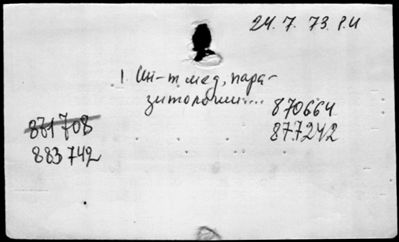 24. 7. 73. Р.И
1 Ин-т мед. пара-
зитологии....
870664
871708
877242
883742